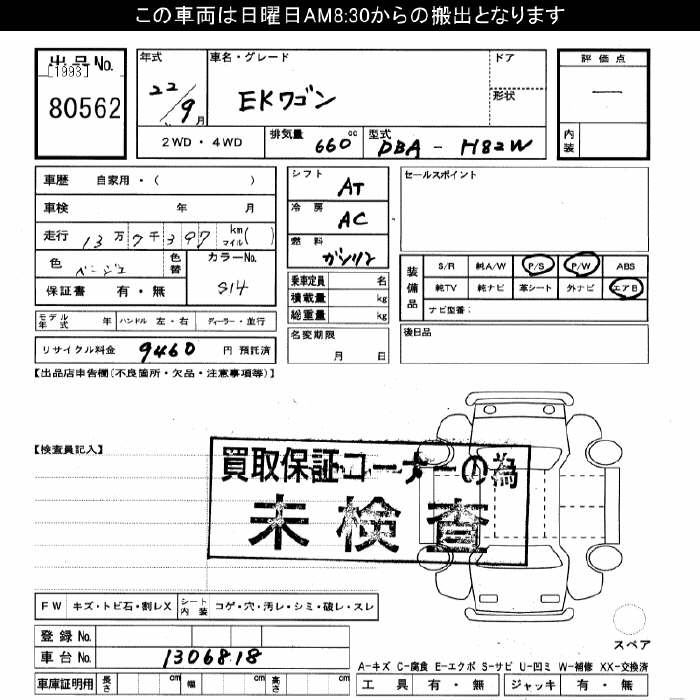 この車両は日曜日AM8:30からの搬出となります
出品No. 年式 車名・グレード ドア 評価点
[1993]
80562 22/9月 EKワゴン 形状 —
2WD・4WD 排気量 660cc 型式 DBA-H82W 内装
車歴 自家用・( ) シフト AT セールスポイント
車検 年 月 冷房 AC
走行 13万7千397 km マイル( )
燃料 ガソリン
色 ベージュ 色替 カラーNo. S14
保証書 有・無
乗車定員 名
積載量 kg
総重量 kg
装備品 S/R 純A/W P/S P/W ABS
純TV 純ナビ 革シート 外ナビ エアB
ナビ型番:
モデル年式 年 ハンドル 左・右 ディーラー・並行 名変期限 月 日 後日品
リサイクル料金 9460 円 預託済
【出品店申告欄(不良箇所・欠品・注意事項等)】
【検査員記入】
買取保証コーナーの為
未検査
FW キズ・トビ石・割レX シート内装 コゲ・穴・汚レ・シミ・破レ・スレ
スペア
登録No.
車台No. 1306818
A-キズ C-腐食 E-エクボ S-サビ U-凹ミ W-補修 XX-交換済
車庫証明用 長さ cm 幅 cm 高さ cm 工具 有・無 ジャッキ 有・無